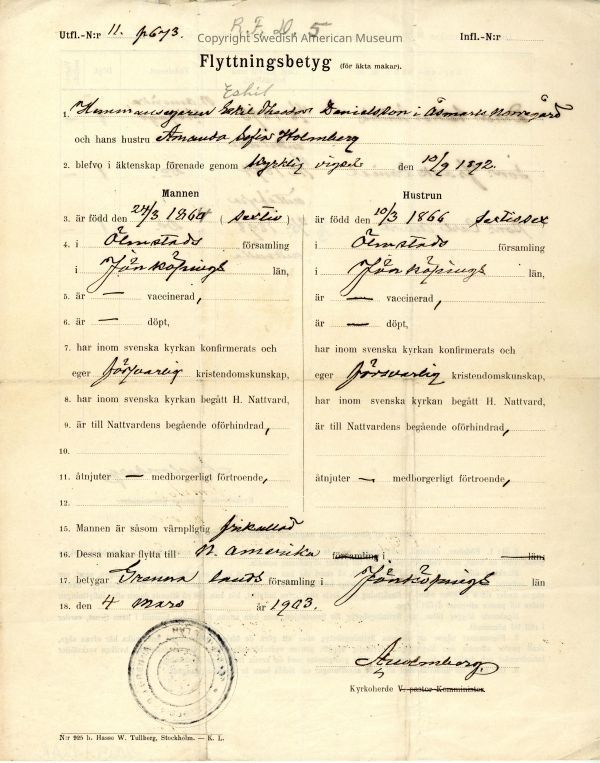 R. F. D. 5
Utfl.-N:r 11. p673. Infl.-N:r
Copyright Swedish American Museum
Flyttningsbetyg (för äkta makar).
Eskil
1. Hemmansegaren Eskil Theodor Danielsson i Åsmarks Norregård
och hans hustru Amanda Sofia Holmberg
2. blefvo i äktenskap förenade genom kyrklig vigsel den 10/9 1892.
Mannen Hustrun
3. är född den 24/3 1860 (sextio) är född den 10/3 1866 sextiosex
4. i Ölmstads församling i Ölmstads församling
i Jönköpings län, i Jönköpings län,
5. är — vaccinerad, är — vaccinerad,
6. är — döpt, är — döpt,
7. har inom svenska kyrkan konfirmerats och har inom svenska kyrkan konfirmerats och
eger försvarlig kristendomskunskap, eger försvarlig kristendomskunskap,
8. har inom svenska kyrkan begått H. Nattvard, har inom svenska kyrkan begått H. Nattvard,
9. är till Nattvardens begående oförhindrad, är till Nattvardens begående oförhindrad,
10.
11. åtnjuter — medborgerligt förtroende, åtnjuter — medborgerligt förtroende,
12.
15. Mannen är såsom värnpligtig frikallad
16. Dessa makar flytta till N. Amerika församling i län.
17. betygar Grenna lands församling i Jönköpings län
18. den 4 mars år 1903.
Kyrkoherde V. pastor Komminister
N:r 925 b. Hasse W. Tullberg, Stockholm. — K. L.